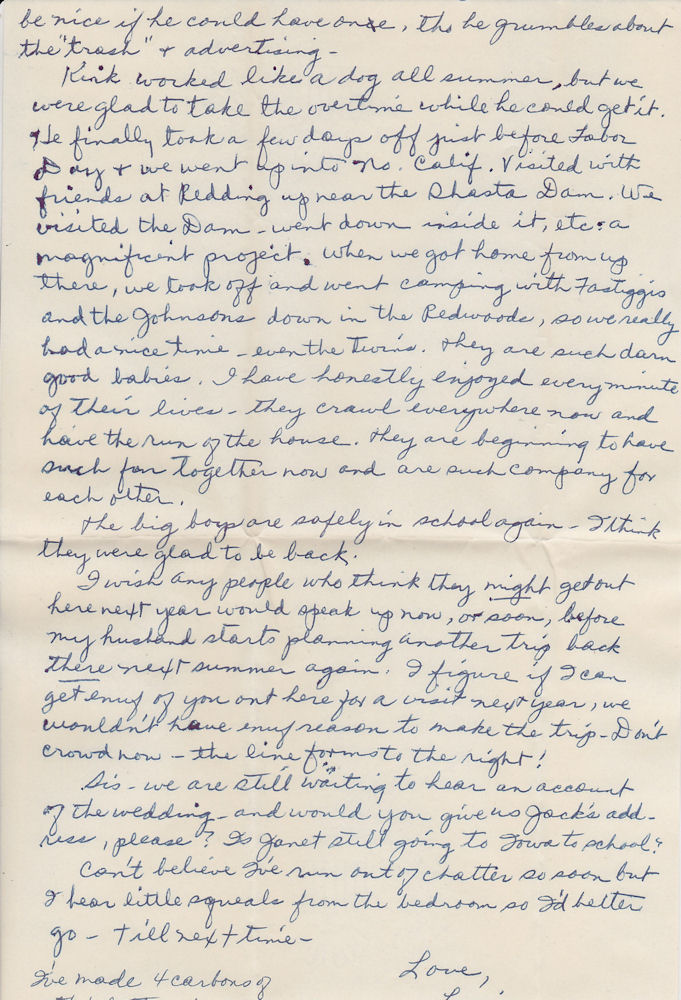 be nice if he could have one, tho he grumbles about
the "trash" & advertising -
Kink worked like a dog all summer, but we
were glad to take the overtime while he could get it.
He finally took a few days off just before Labor
Day & we went up into No. Calif. Visited with
friends at Redding up near the Shasta Dam. We
visited the Dam - went down inside it, etc. a
magnificent project. When we got home from up
there, we took off and went camping with Fastiggis
and the Johnsons down in the Redwoods, so we really
had a nice time - even the Twins. They are such darn
good babies. I have honestly enjoyed every minute
of their lives - they crawl everywhere now and
have the run of the house. They are beginning to have
such fun together now and are such company for
each other.
The big boys are safely in school again - I think
they were glad to be back.
I wish any people who think they might get out
here next year would speak up now, or soon, before
my husband starts planning another trip back
there next summer again. I figure if I can
get enuf of you out here for a visit next year, we
wouldn't have enuf reason to make the trip - Don't
crowd now - the line forms to the right!
Sis - we are still waiting to hear an account
of the wedding - and would you give us Jack's add-
ress, please? Is Janet still going to Iowa to school?
Can't believe I've run out of chatter so soon but
I hear little squeals from the bedroom so I'd better
go - till next time -
Love,
I've made 4 carbons of